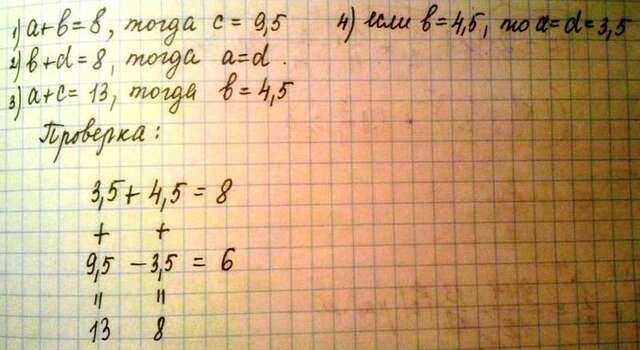 1) a+b=8, тогда c=9,5
2) b+d=8, тогда a=d.
3) a+c=13, тогда b=4,5
4) если b=4,5, то a=d=3,5
Проверка:
3,5 + 4,5 = 8
+ +
9,5 - 3,5 = 6
" "
13 8